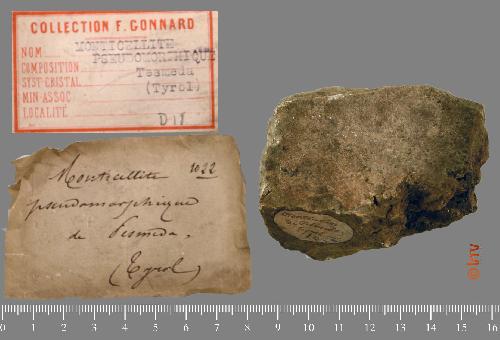 COLLECTION F. GONNARD
NOM MONTICELLITE
PSEUDOMORPHIQUE
COMPOSITION
Tesmeda
SYST CRISTAL
(Tyrol)
MIN ASSOC
LOCALITÉ
D 18
Monticellite 1022
pseudomorphique
de Pesmeda.
(Tyrol)
0 1 2 3 4 5 6 7 8 9 10 11 12 13 14 15 16